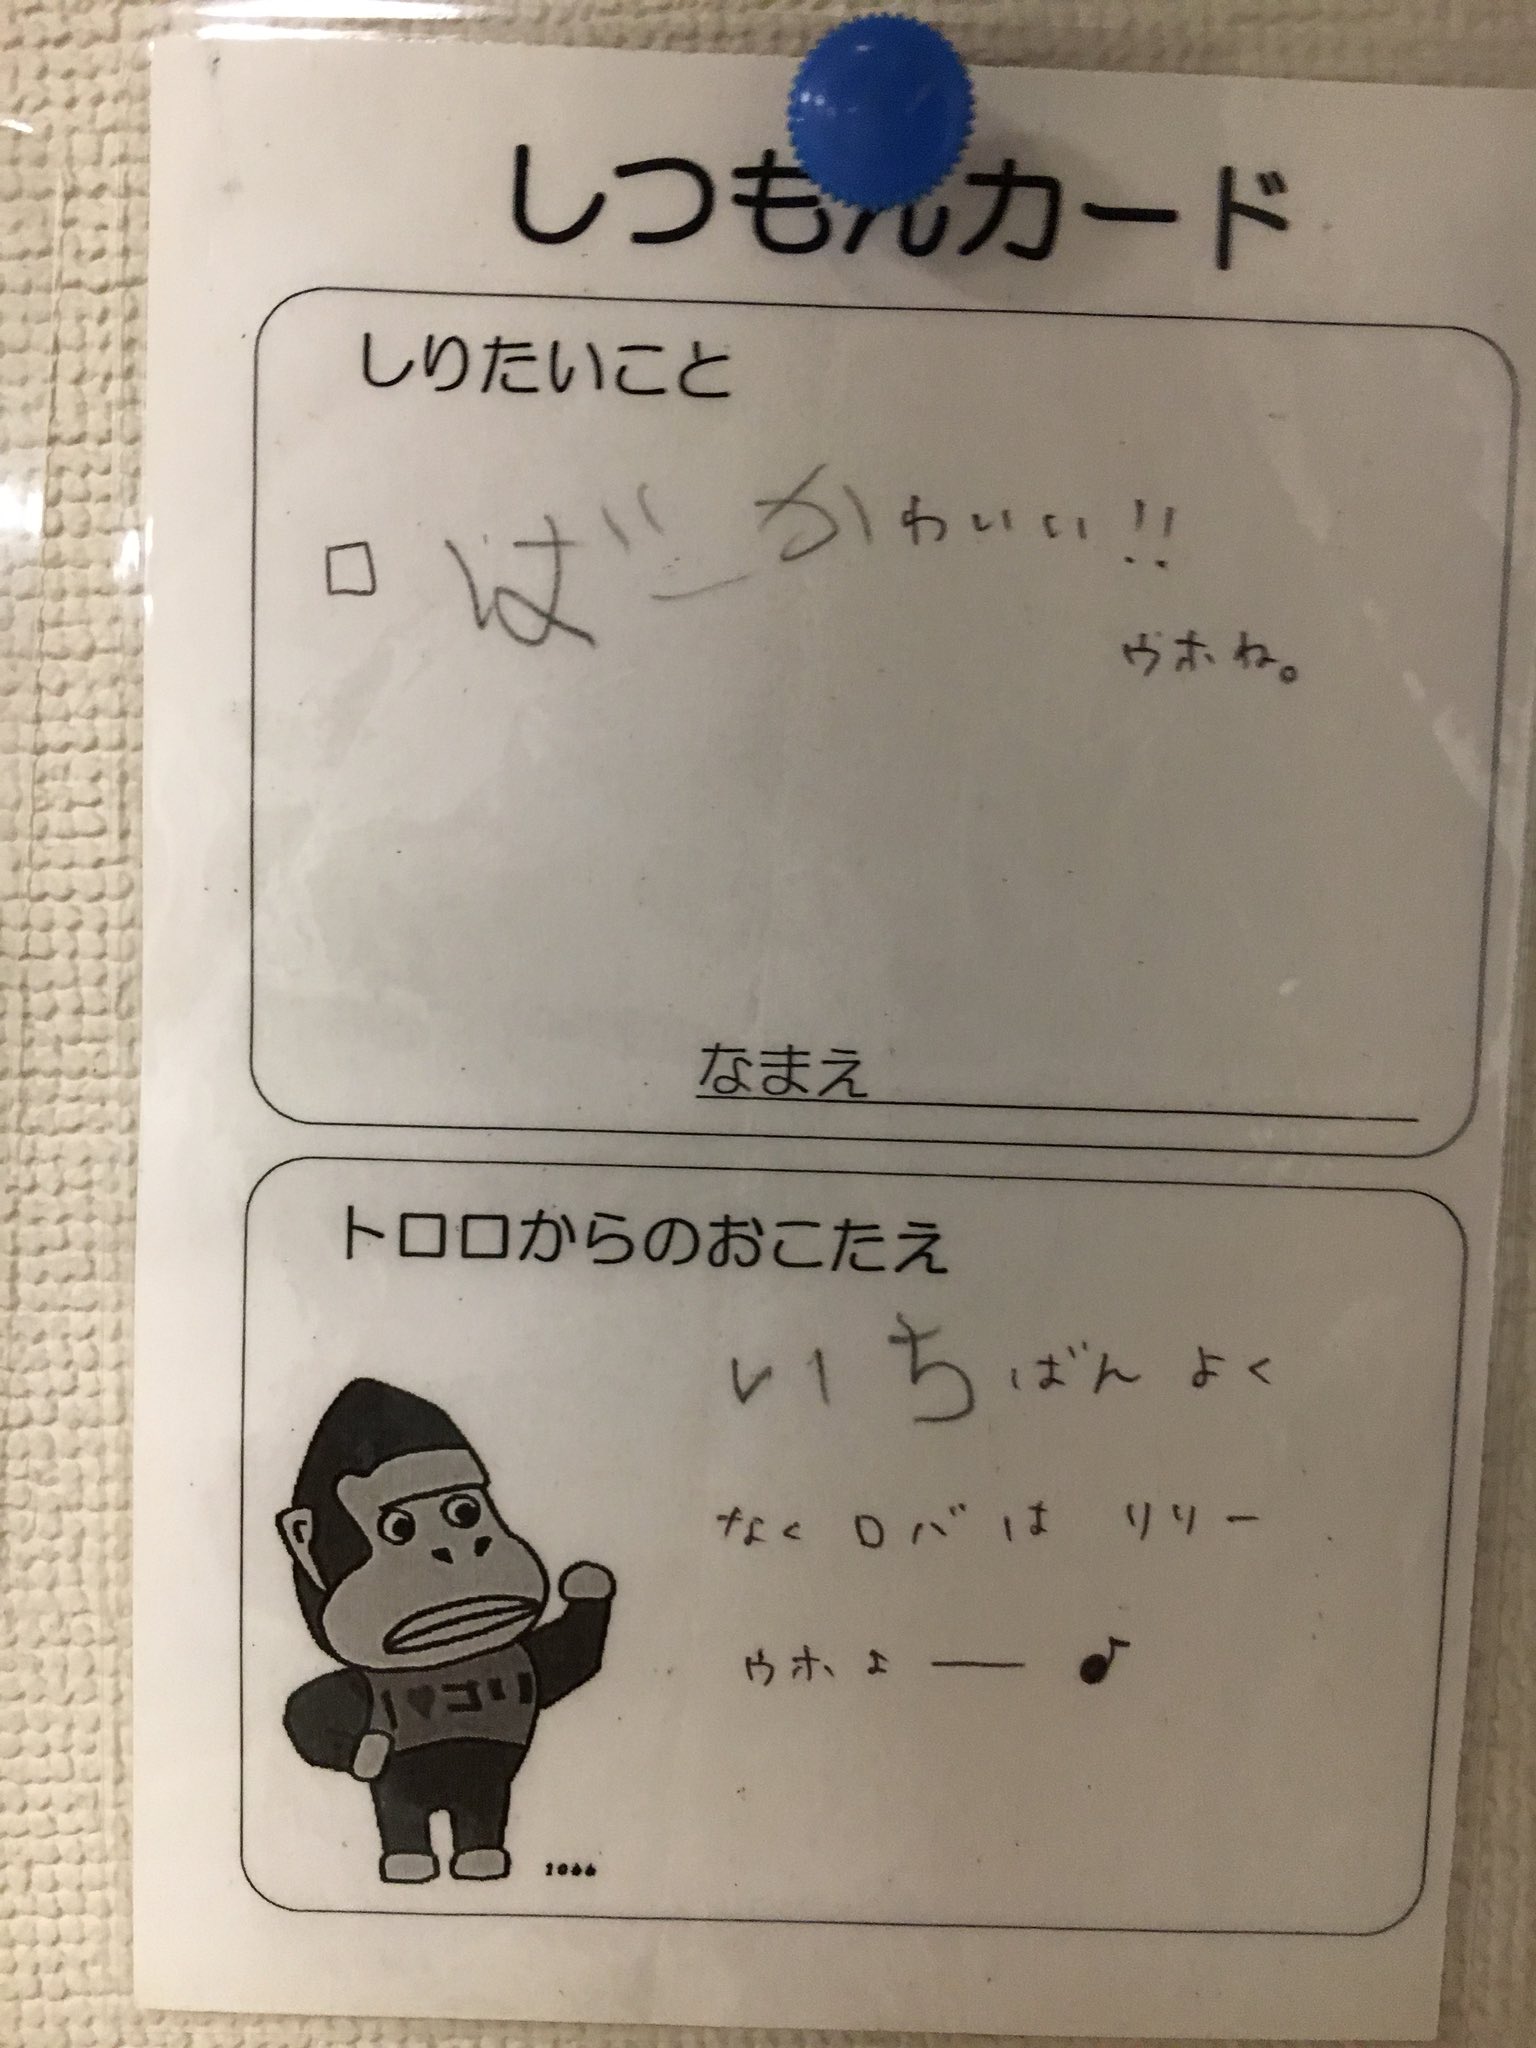 しつもんカード
しりたいこと
ロばーかわいい!!
ウホね。
なまえ
トロロからのおこたえ
いちばん よく
なくロバは リリー
ウホよ ー ♪
I♥ゴリ
1066